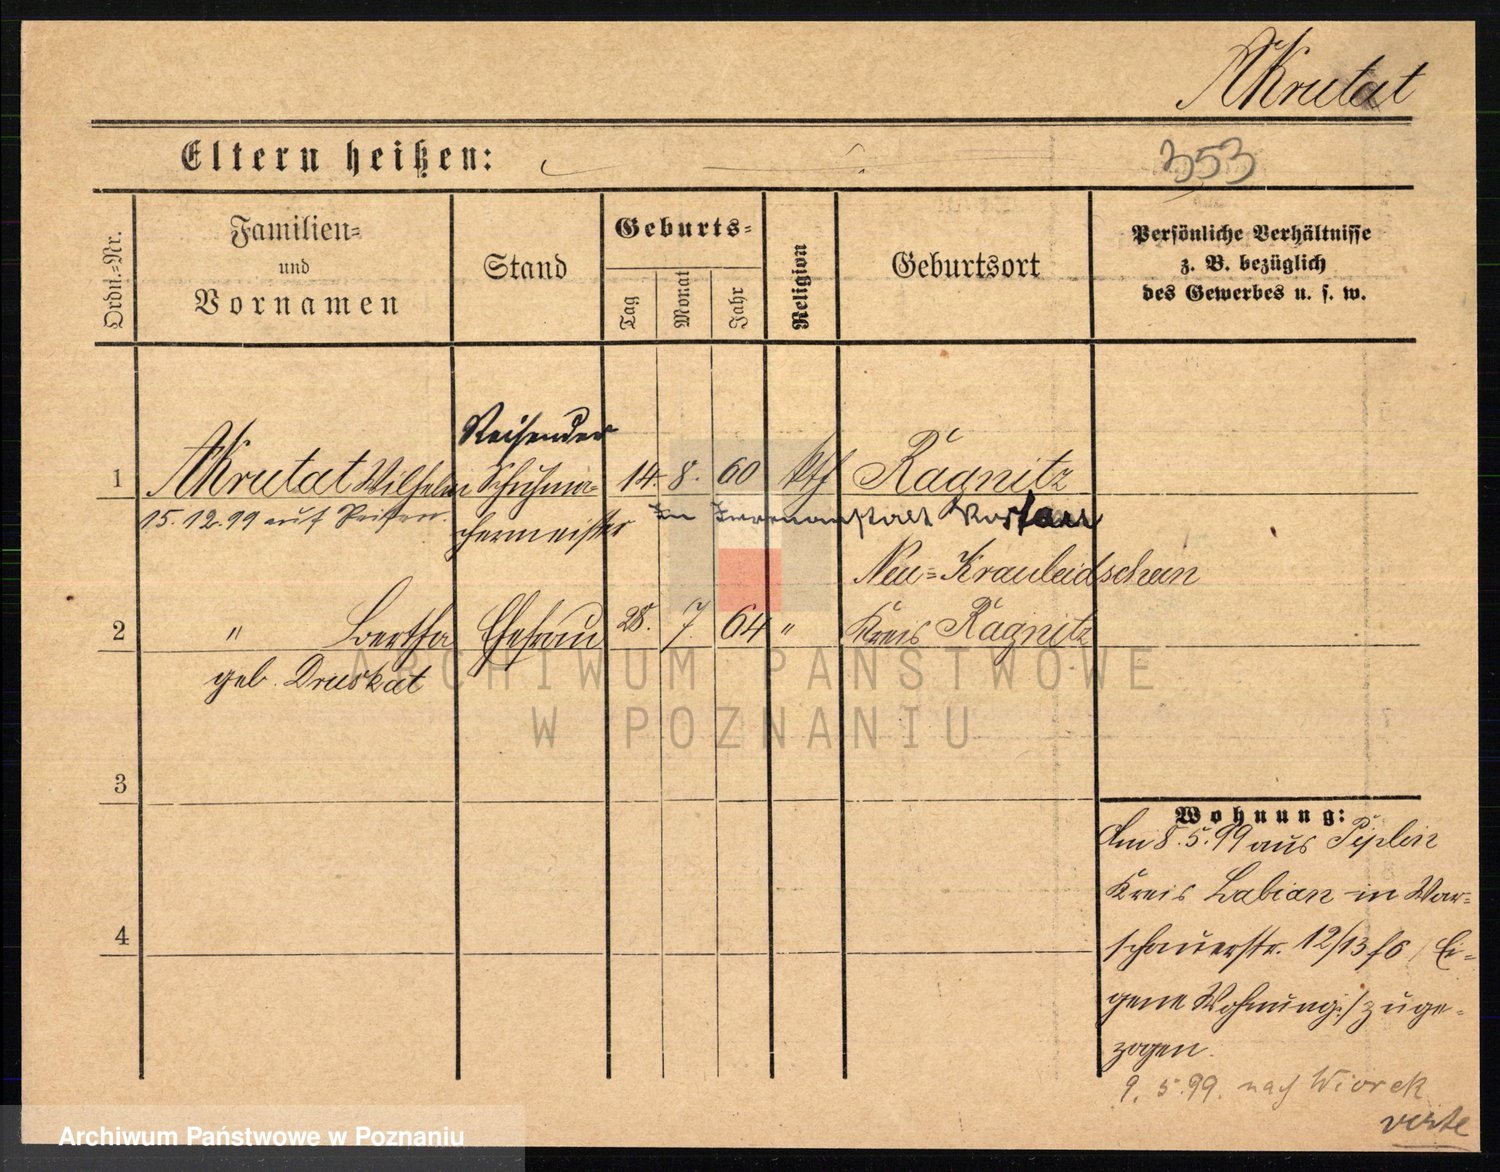 Akrutat
Eltern heißen:
353
Ordn.-Nr.
Familien-
und
Vornamen
Stand
Geburts-
Tag
Monat
Jahr
Religion
Geburtsort
Persönliche Verhältnisse
z. B. bezüglich
des Gewerbes u. s. w.
Reisender
1 Akrutat Wilhelm Schuhma- 14. 8. 60 Ragnitz
15.12.99 auf Reisen. chermeister In Irrenanstalt
Neu-Krauleidschen
2 " Bertha Ehefrau 28. 7. 64 " Kreis Ragnitz
geb. Druskat
3
4
Wohnung:
Am 8.5.99 aus Peplin
Kreis Labian in War-
schauerstr. 12/13 Ei-
gene Wohnung:/ zuge-
zogen.
9. 5. 99. nach Wiorek
verte
ARCHIWUM PAŃSTWOWE
W POZNANIU
Archiwum Państwowe w Poznaniu